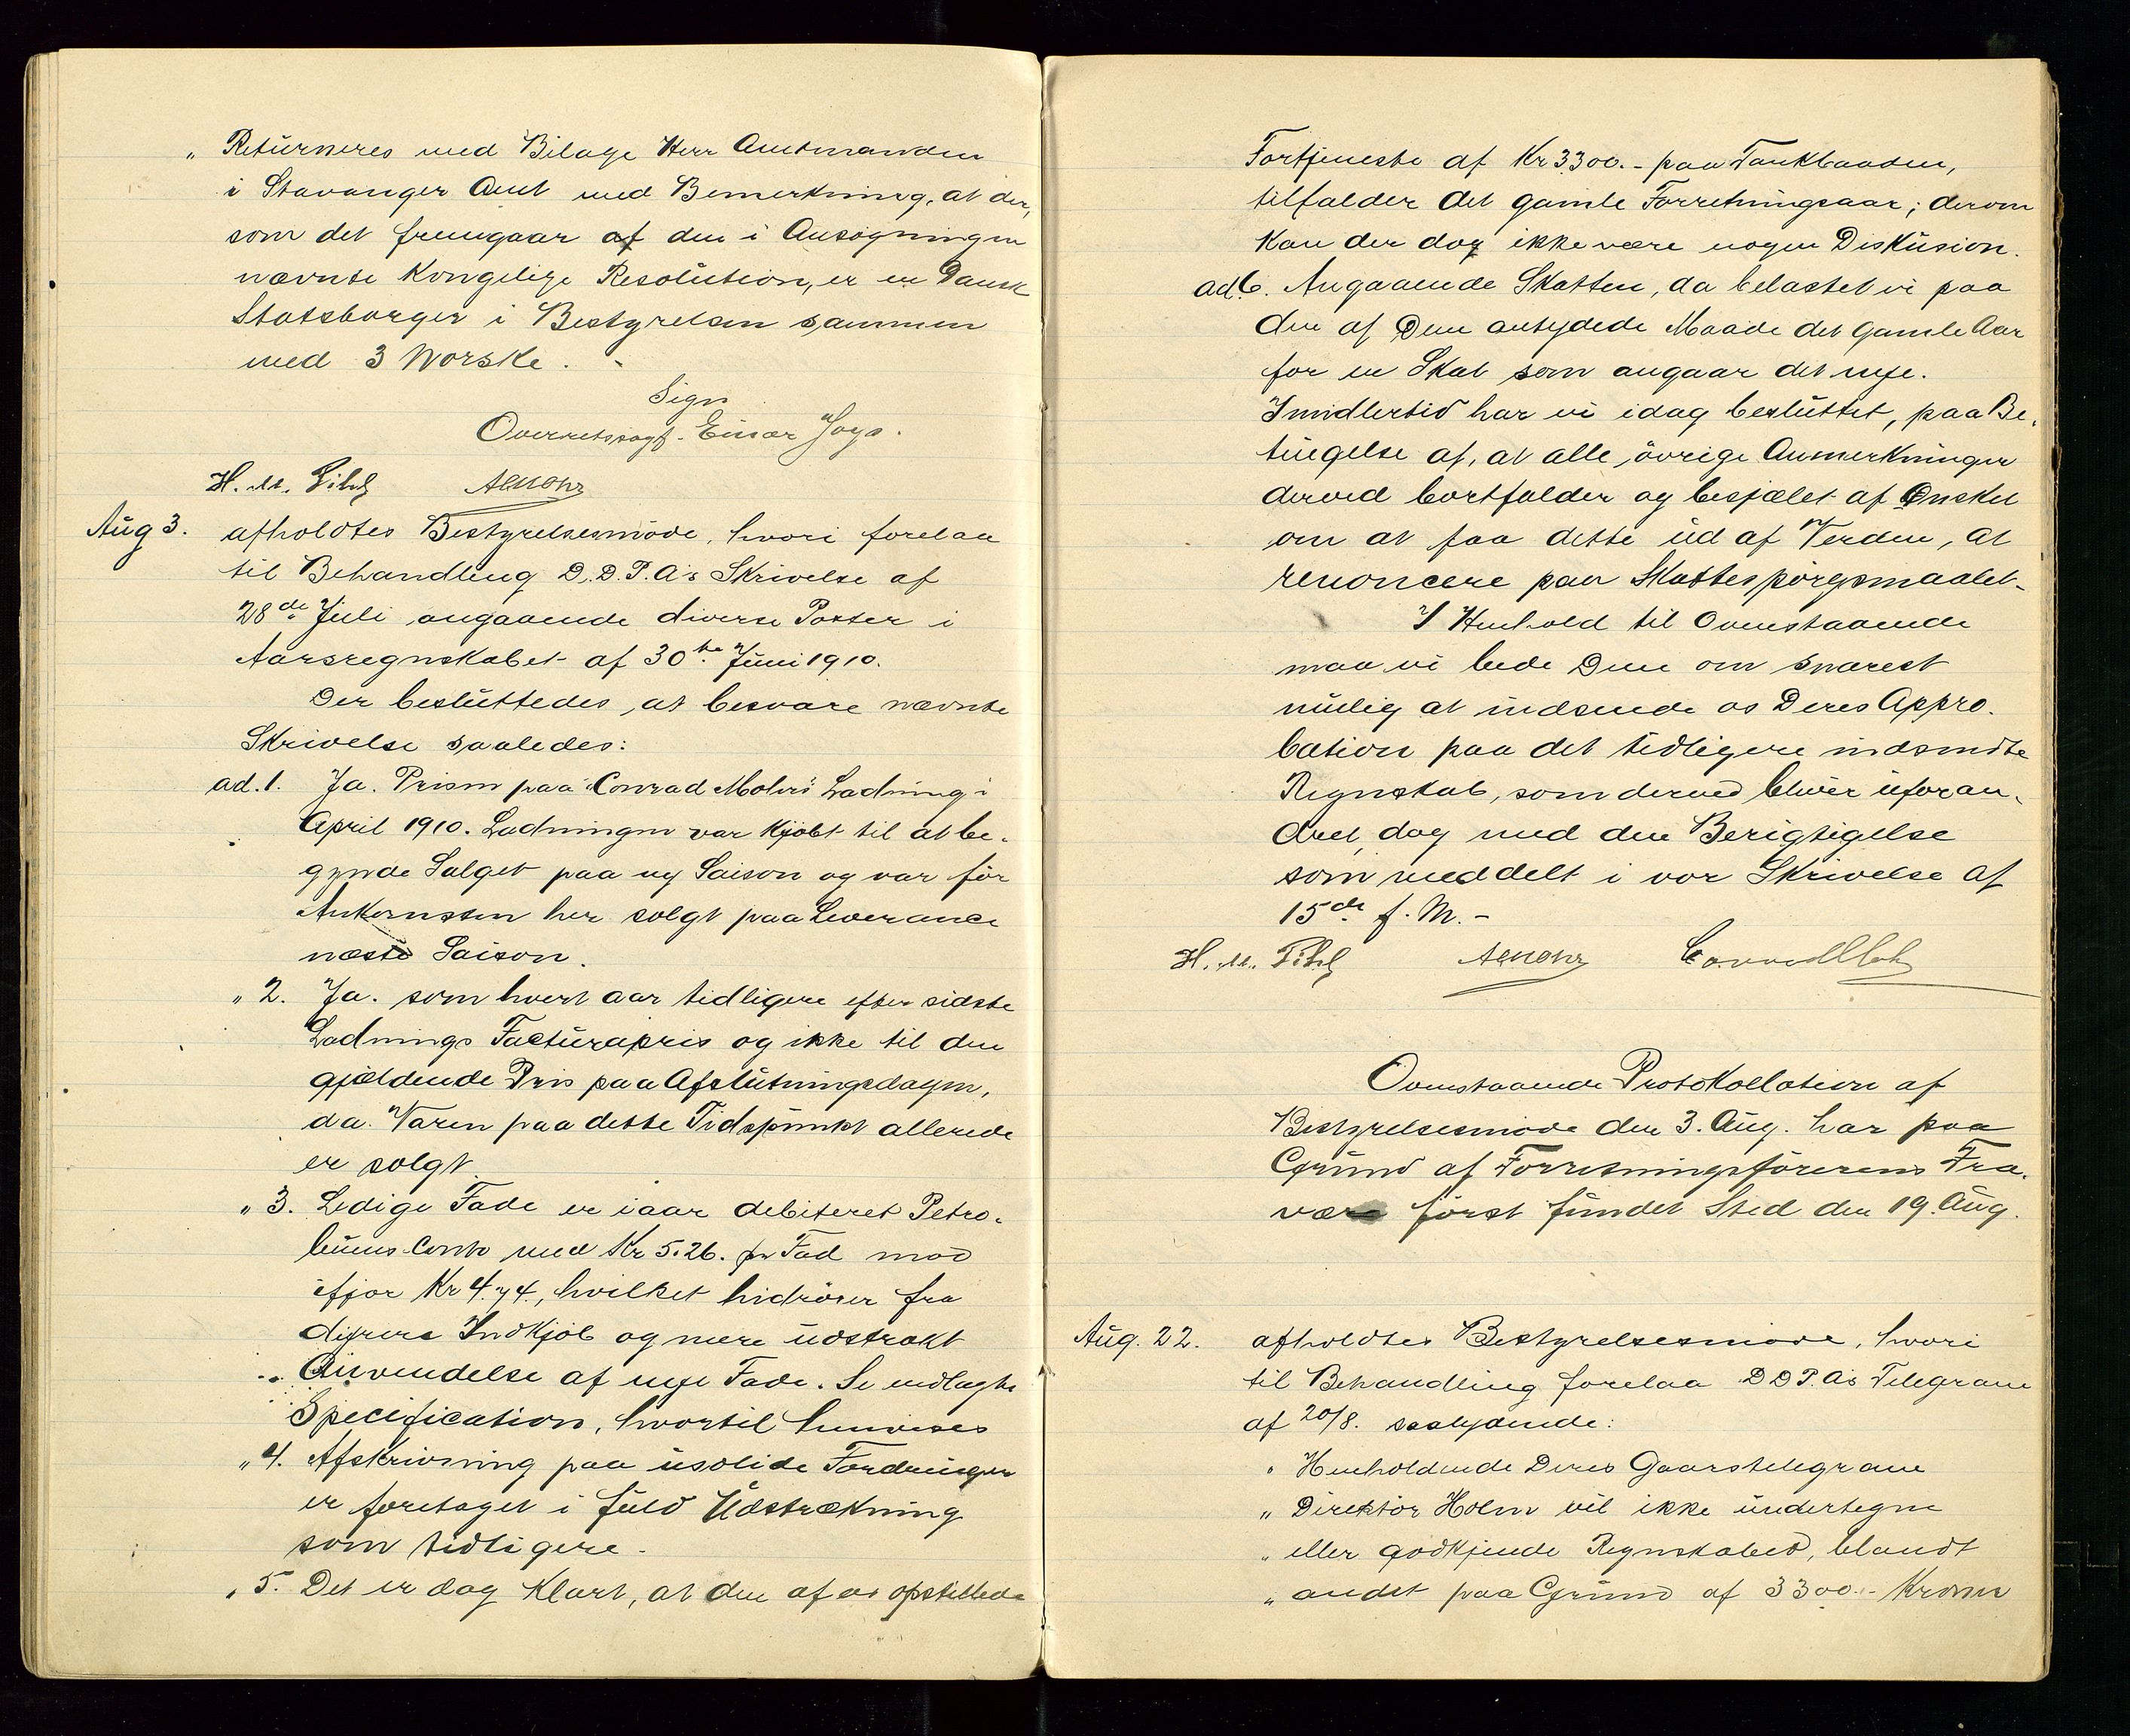 „ Returneres med Bilage Herr Amtmanden
i Stavanger Amt med Bemerkning, at der,
som det fremgaar af den i Ansøgningen
nævnte Kongelige Resolution, er en Dansk
Statsborger i Bestyrelsen sammen
med 3 Norske.
Sign
Overretssagf. Einar
H. M. Pihl AEMohr
Aug 3. afholdtes Bestyrelsesmöde, hvori forelaa
til Behandling D.D.P.A's Skrivelse af
28de Juli angaaende diverse Poster i
Aarsregnskabet af 30te Juni 1910.
Der besluttedes, at besvare nævnte
Skrivelse saaledes:
ad. 1. Ja. Prisen paa "Conrad Mohrs" Ladning i
April 1910. Ladningen var kjöbt til at be-
gynde Salget paa ny Saison og var för
Ankomsten her solgt paa Leverance
næste Saison.
„ 2. Ja. som hvert aar tidligere efter sidste
Ladnings Facturapris og ikke til den
gjældende Pris paa Afslutningsdagen,
da Varen paa dette Tidspunkt allerede
er solgt.
„ 3. Ledige Fade er iaar debiteret Petro-
leums Conto med Kr 5.26. pr Fad mod
ifjor Kr 4.74., hvilket hidrörer fra
dyrere Indkjöb og mere udstrakt
Anvendelse af nye Fade. Se indlagte
Specification, hvortil henvises
„ 4. Afskrivning paa usolide Fordringer
er foretaget i fuld Udstrækning
som tidligere.
„ 5. Det er dog klart, at den af os opstillede
Fortjeneste af Kr 3300.- paa Tankbaaden,
tilfalder det gamle Forretningsaar; derom
kan der dog ikke være nogen Diskusion.
ad. 6. Angaaende Skatten, da belastet vi paa
den af Dem antydede Maade det gamle Aar
for en Skat som angaar det nye.
Imidlertid har vi idag besluttet, paa Be-
tingelse af, at alle övrige Anmerkninger
derved bortfalder og besjælet af Ønsket
om at faa dette ud af Verden, at
renoncere paa Skattespörgsmaalet.
I Henhold til Ovenstaaende
maa vi bede Dem om snarest
mulig at indsende os Deres Appro-
bation paa det tidligere indsendte
Regnskab, som derved bliver uforan-
dret, dog med den Berigtigelse
som meddelt i vor Skrivelse af
15de f. M.-
H. M. Pihl AEMohr Conrad Mohr
Ovenstaaende Protokollation af
Bestyrelsesmöde den 3. Aug. har paa
Grund af Forretningsförerens Fra-
vær först fundet Sted den 19. Aug.
Aug. 22. afholdtes Bestyrelsesmöde, hvori
til Behandling forelaa D D P.A's Telegram
af 20/8. saalydende:
„ Henholdende Deres Gaarstelegram
„ Direktör Holm vil ikke undertegne
„ eller godkjende Regnskabed, blandt
„ andet paa Grund af 3300.- Kroner